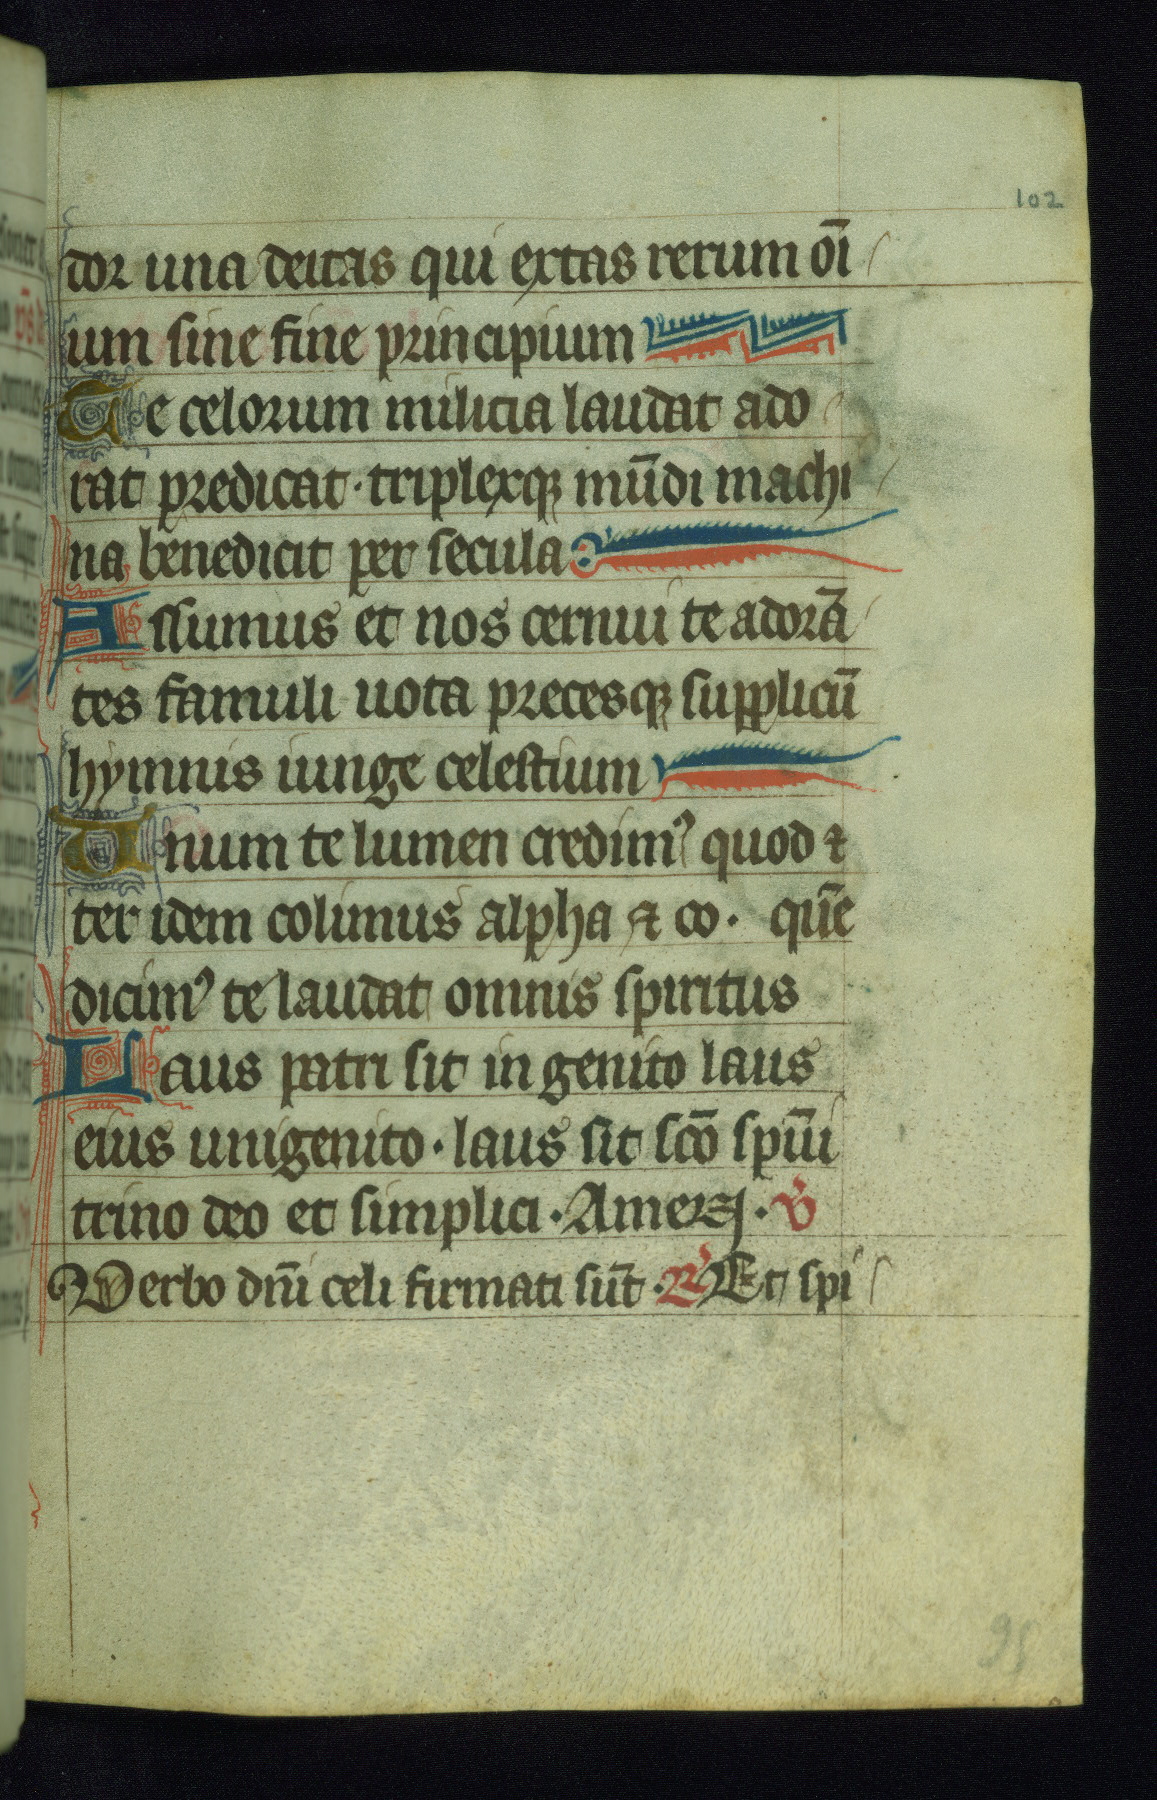 102
dor una deitas qui extas rerum oı̄
ium sine fine principium
Te celorum milicia laudat ado
rat predicat · triplexqꝫ mūdi machi
na benedicit per secula
Assumus et nos cernui te adorā
tes famuli uota precesqꝫ supplicū
hymnis iunge celestium
Unum te lumen credimꝰ quod ⁊
ter idem colimus alpha ⁊ co · quē
dicimꝰ te laudat omnis spiritus
Laus patri sit in genito laus
eius unigenito · laus sit scō spūi
trino deo et simplici · Amen · v̾
Verbo dn̄i celi firmati sūt · R̾ Et spi
95